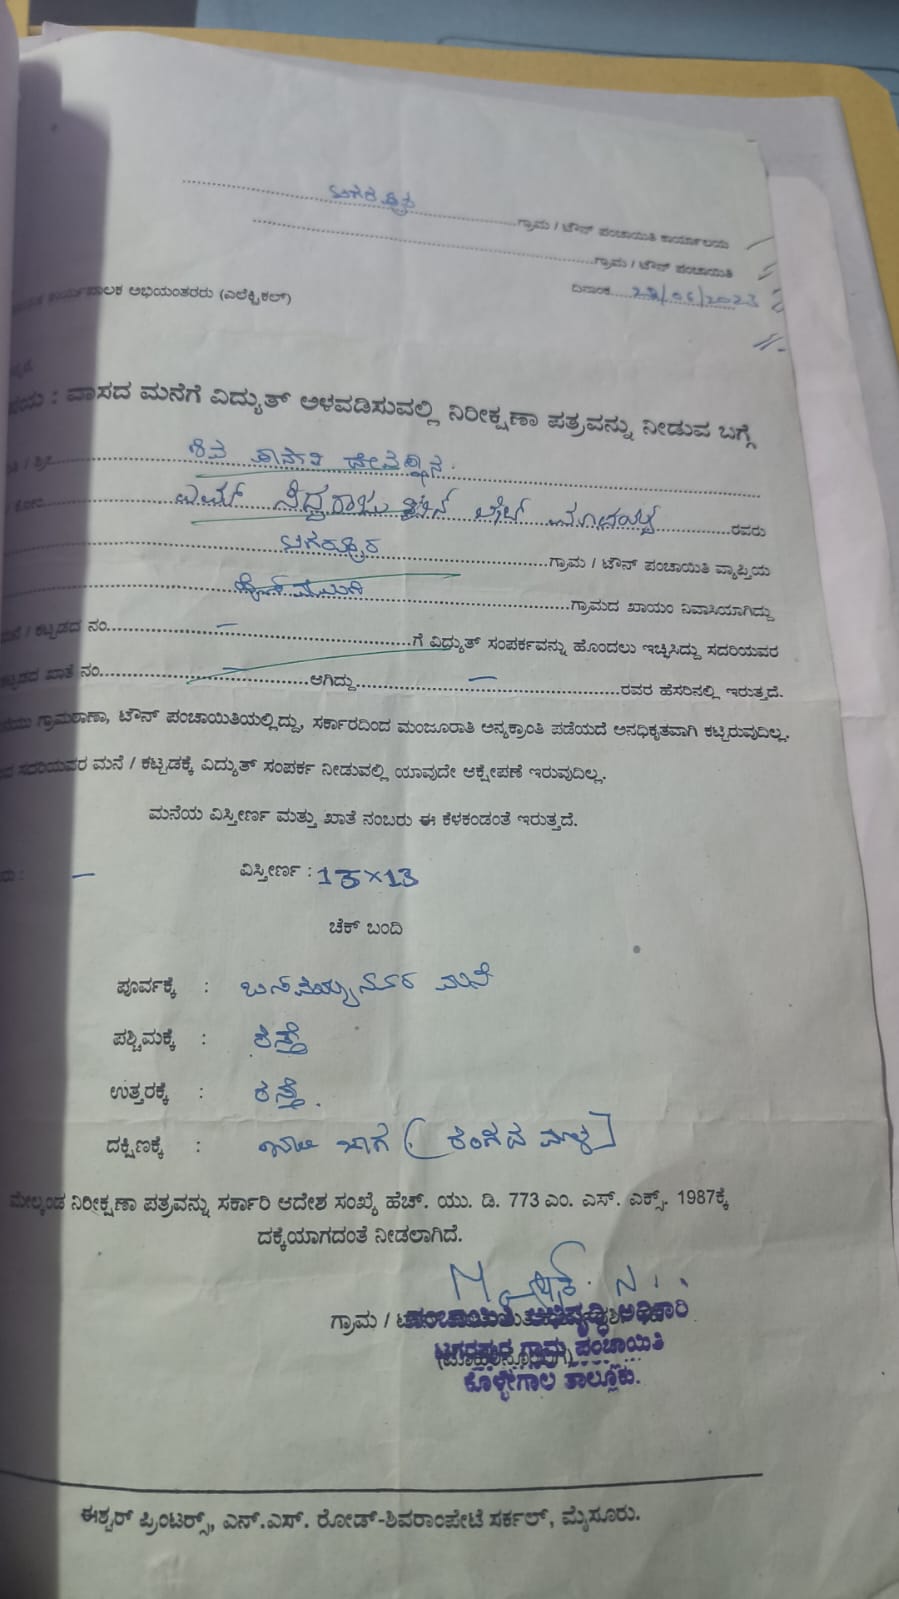 ಟಗರಪುರ ಗ್ರಾಮ / ಟೌನ್ ಪಂಚಾಯಿತಿ ಕಾರ್ಯಾಲಯ
ಗ್ರಾಮ / ಟೌನ್ ಪಂಚಾಯಿತಿ
ಕಾರ್ಯಪಾಲಕ ಅಭಿಯಂತರರು (ಎಲೆಕ್ಟ್ರಿಕಲ್)
ದಿನಾಂಕ
: ವಾಸದ ಮನೆಗೆ ವಿದ್ಯುತ್ ಅಳವಡಿಸುವಲ್ಲಿ ನಿರೀಕ್ಷಣಾ ಪತ್ರವನ್ನು ನೀಡುವ ಬಗ್ಗೆ
ಶಿವ
ಸಿದ್ದರಾಜು ಬಿನ್ ಲೇಟ್ ರವರು
ಟಗರಪುರ ಗ್ರಾಮ / ಟೌನ್ ಪಂಚಾಯಿತಿ ವ್ಯಾಪ್ತಿಯ
ಗ್ರಾಮದ ಖಾಯಂ ನಿವಾಸಿಯಾಗಿದ್ದು
/ ಕಟ್ಟಡದ ನಂ. – ಗೆ ವಿದ್ಯುತ್ ಸಂಪರ್ಕವನ್ನು ಹೊಂದಲು ಇಚ್ಛಿಸಿದ್ದು ಸದರಿಯವರ
ಕಟ್ಟಡದ ಖಾತೆ ನಂ. – ಆಗಿದ್ದು – ರವರ ಹೆಸರಿನಲ್ಲಿ ಇರುತ್ತದೆ.
ಗ್ರಾಮಠಾಣಾ, ಟೌನ್ ಪಂಚಾಯಿತಿಯಲ್ಲಿದ್ದು, ಸರ್ಕಾರದಿಂದ ಮಂಜೂರಾತಿ ಅನ್ಯಕ್ರಾಂತಿ ಪಡೆಯದೆ ಅನಧಿಕೃತವಾಗಿ ಕಟ್ಟಿರುವುದಿಲ್ಲ.
ಸದರಿಯವರ ಮನೆ / ಕಟ್ಟಡಕ್ಕೆ ವಿದ್ಯುತ್ ಸಂಪರ್ಕ ನೀಡುವಲ್ಲಿ ಯಾವುದೇ ಆಕ್ಷೇಪಣೆ ಇರುವುದಿಲ್ಲ.
ಮನೆಯ ವಿಸ್ತೀರ್ಣ ಮತ್ತು ಖಾತೆ ನಂಬರು ಈ ಕೆಳಕಂಡಂತೆ ಇರುತ್ತದೆ.
– ವಿಸ್ತೀರ್ಣ : 13×13
ಚೆಕ್ ಬಂದಿ
ಪೂರ್ವಕ್ಕೆ : ಮನೆ
ಪಶ್ಚಿಮಕ್ಕೆ : ರಸ್ತೆ
ಉತ್ತರಕ್ಕೆ : ರಸ್ತೆ.
ದಕ್ಷಿಣಕ್ಕೆ : ಖಾಲಿ ಜಾಗ
ಮೇಲ್ಕಂಡ ನಿರೀಕ್ಷಣಾ ಪತ್ರವನ್ನು ಸರ್ಕಾರಿ ಆದೇಶ ಸಂಖ್ಯೆ ಹೆಚ್. ಯು. ಡಿ. 773 ಎಂ. ಎಸ್. ಎಕ್ಸ್. 1987ಕ್ಕೆ
ದಕ್ಕೆಯಾಗದಂತೆ ನೀಡಲಾಗಿದೆ.
ಗ್ರಾಮ /
ಪಂಚಾಯಿತಿ ಅಭಿವೃದ್ಧಿ ಅಧಿಕಾರಿ
ಟಗರಪುರ ಗ್ರಾಮ ಪಂಚಾಯಿತಿ
ಕೊಳ್ಳೇಗಾಲ ತಾಲ್ಲೂಕು.
ಈಶ್ವರ್ ಪ್ರಿಂಟರ್ಸ್, ಎನ್.ಎಸ್. ರೋಡ್-ಶಿವರಾಂಪೇಟೆ ಸರ್ಕಲ್, ಮೈಸೂರು.